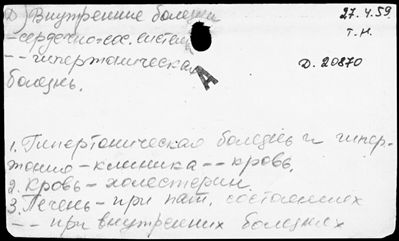 D) Внутренние болезни
27.4.59
-сердечно-сос. системы
т.н.
-- гипертоническая
D. 20870
болезнь.
A
1. Гипертоническая болезнь и гипер-
тония - клиника -- кровь.
2. Кровь - холестерин
3. Печень - при пат. состояниях
-- при внутренних болезнях